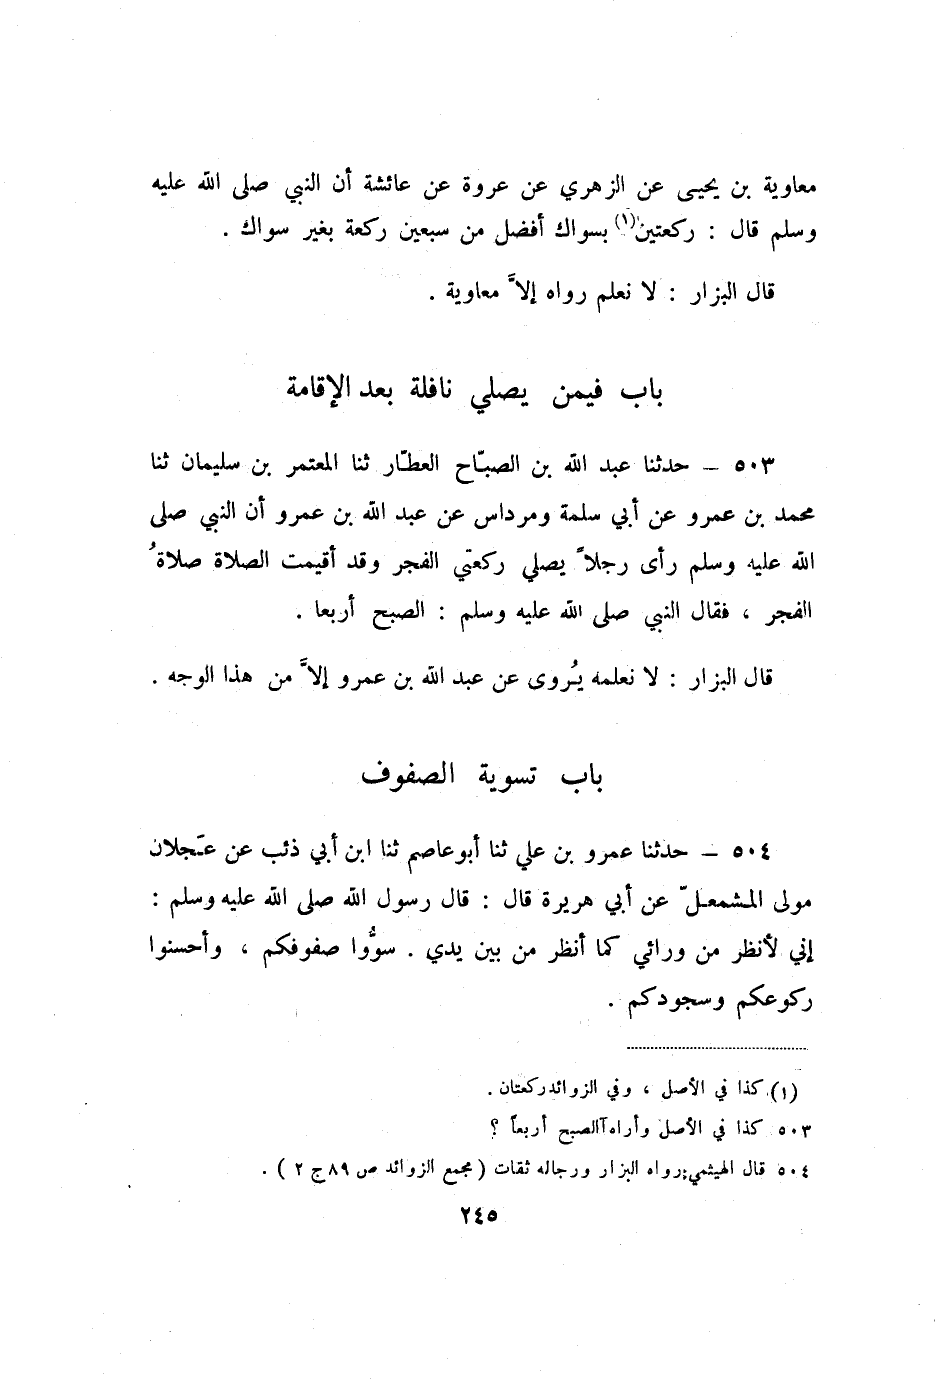 معاوية بن يحيى عن الزهري عن عروة عن عائشة أن النبي صلى الله عليه
وسلم قال : ركعتين(١) بسواك أفضل من سبعين ركعة بغير سواك .
قال البزار : لا نعلم رواه إلاَّ معاوية .
باب فيمن يصلي نافلة بعد الإقامة
٥٠٣ – حدثنا عبد الله بن الصبّاح العطّار ثنا المعتمر بن سليمان ثنا
محمد بن عمرو عن أبي سلمة ومرداس عن عبد الله بن عمرو أن النبي صلى
الله عليه وسلم رأى رجلاً يصلي ركعتي الفجر وقد أقيمت الصلاة صلاةُ
الفجر ، فقال النبي صلى الله عليه وسلم : الصبح أربعا .
قال البزار : لا نعلمه يُروى عن عبد الله بن عمرو إلاَّ من هذا الوجه .
باب تسوية الصفوف
٥٠٤ – حدثنا عمرو بن علي ثنا أبو عاصم ثنا ابن أبي ذئب عن عَجلان
مولى المشمعلّ عن أبي هريرة قال : قال رسول الله صلى الله عليه وسلم :
إني لأنظر من ورائي كما أنظر من بين يدي . سوُّوا صفوفكم ، وأحسنوا
ركوعكم وسجودكم .
(١) كذا في الأصل ، وفي الزوائد ركعتان .
٥٠٣ كذا في الأصل وأراه آالصبح أربعاً ؟
٥٠٤ قال الهيثمي: رواه البزار ورجاله ثقات ( مجمع الزوائد ص ٨٩ ج ٢ ) .
٢٤٥